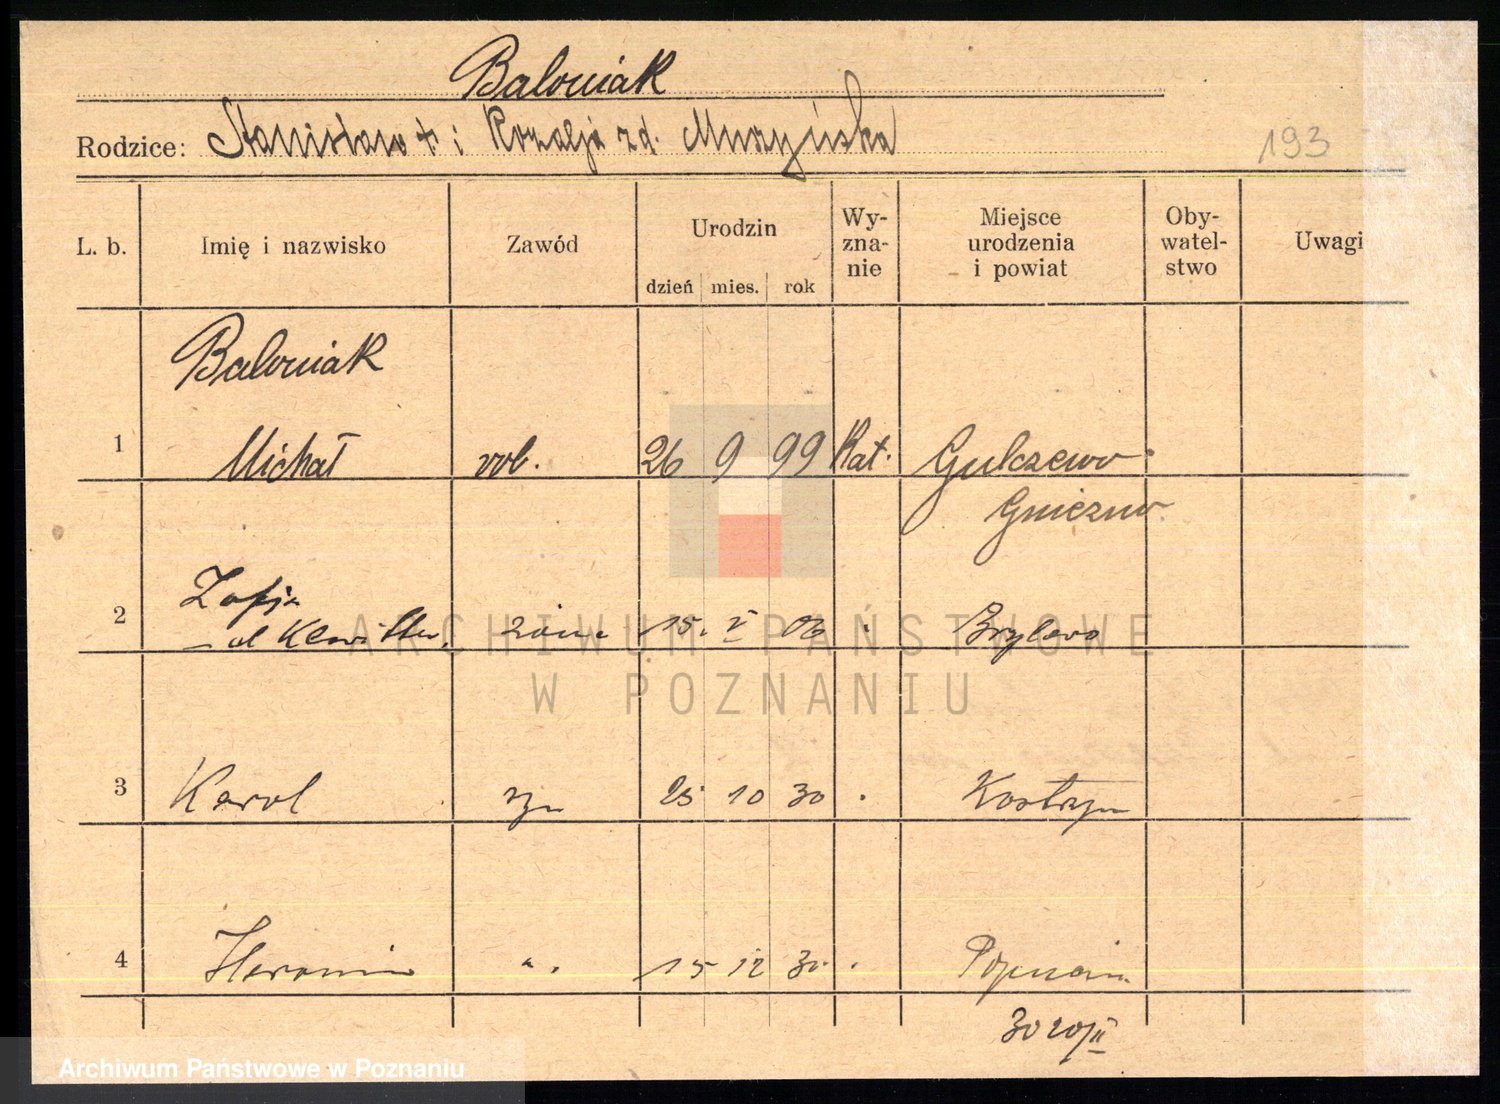 Baloniak
Rodzice: Stanisław + i Rozalja zd. Muszyńska
193
L. b. Imię i nazwisko Zawód Urodzin dzień mies. rok Wy-zna-nie Miejsce urodzenia i powiat Oby-watel-stwo Uwagi
Baloniak
1 Michał rob. 26 9 99 Kat. Gulczewo
Gniezno
Zofja
2 żona 15. V 06 "
3 Karol syn 25 10 30 " Kostrzyn
4 Hieronim " 15 12 30 " Poznań
ARCHIWUM PAŃSTWOWE
W POZNANIU
Archiwum Państwowe w Poznaniu